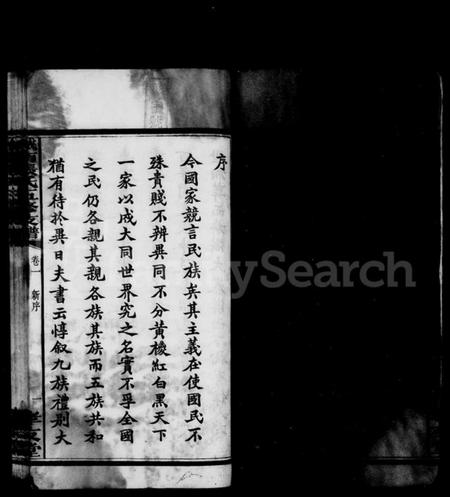 序
今國家競言民族矣其主義在使國民不
殊貴賤不辨異同不分黃櫻紅白黑天下
一家以成大同世界究之名實不孚全國
之民仍各親其親各族其族而五族共和
猶有待於異日夫書云惇叙九族禮別大
支譜
卷一
新序
一
堂
Search